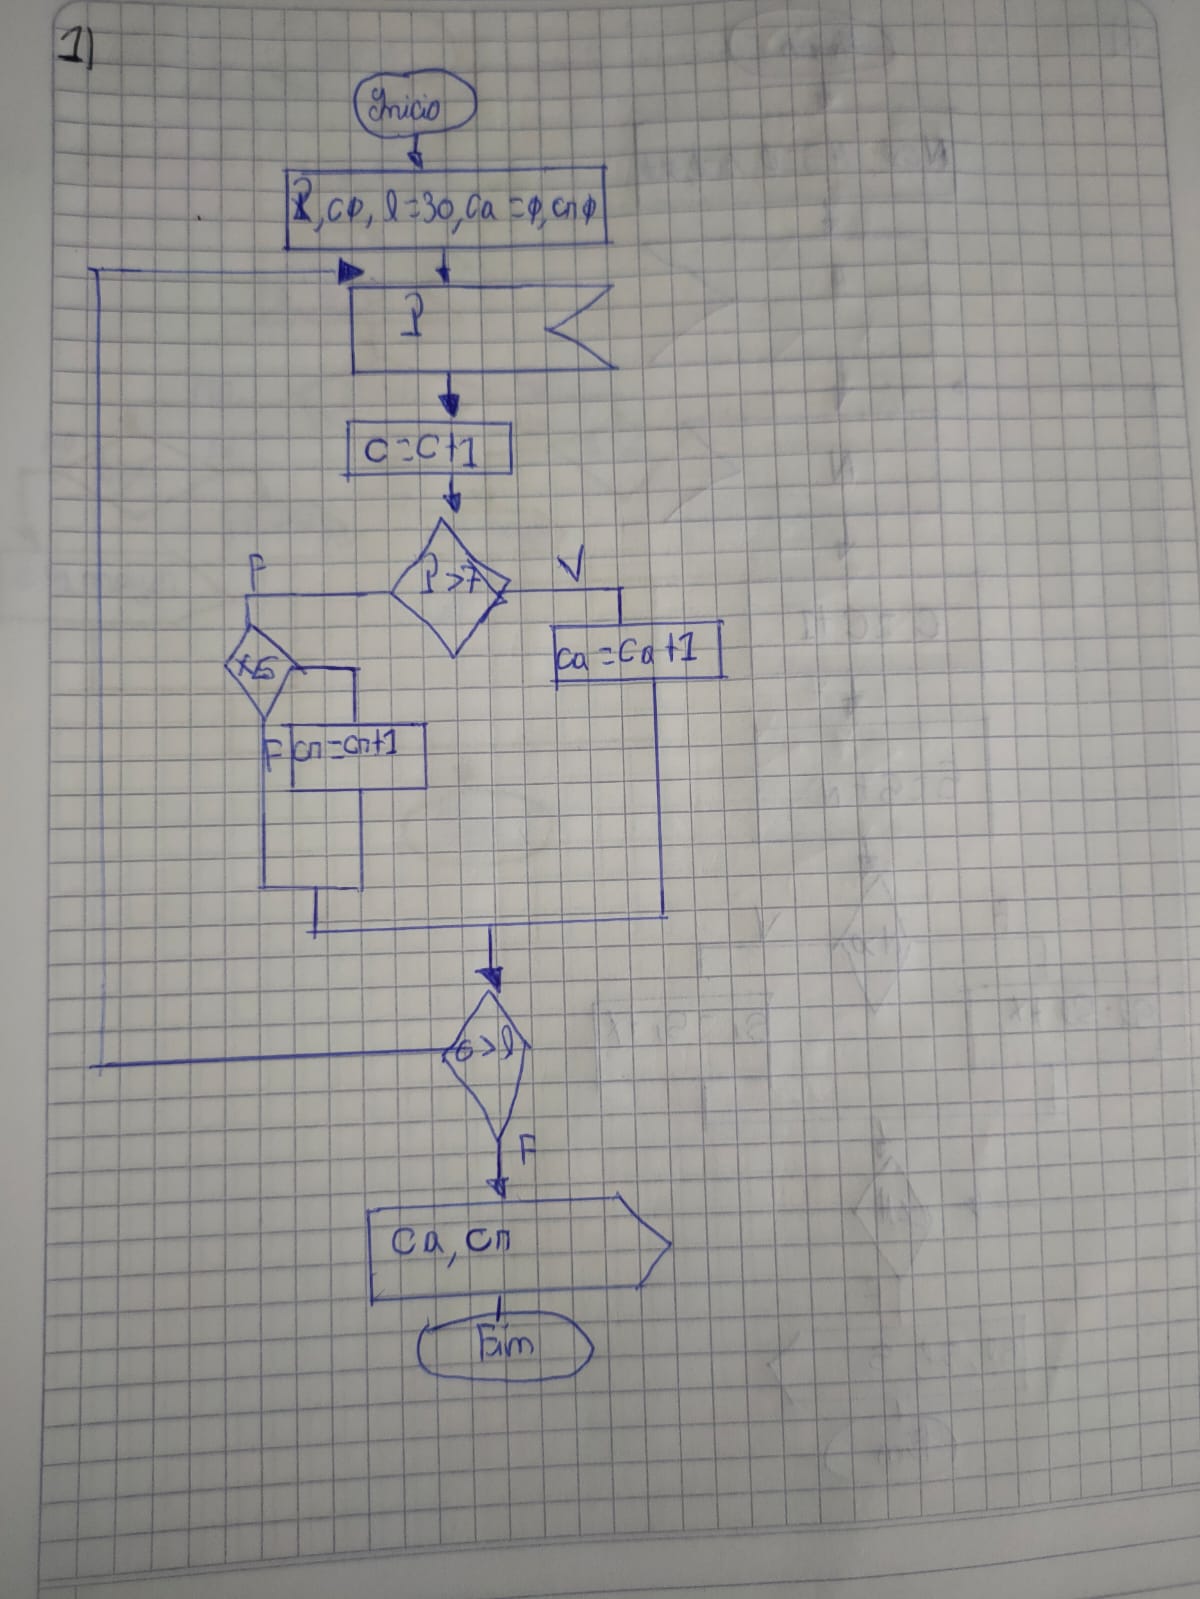 1)
Inicio
P, cφ, l=30, ca=φ, cnφ
P
C=C+1
F
P>7
V
ca=ca+1
F
cn=cn+1
c>l
F
Ca, Cn
Fin